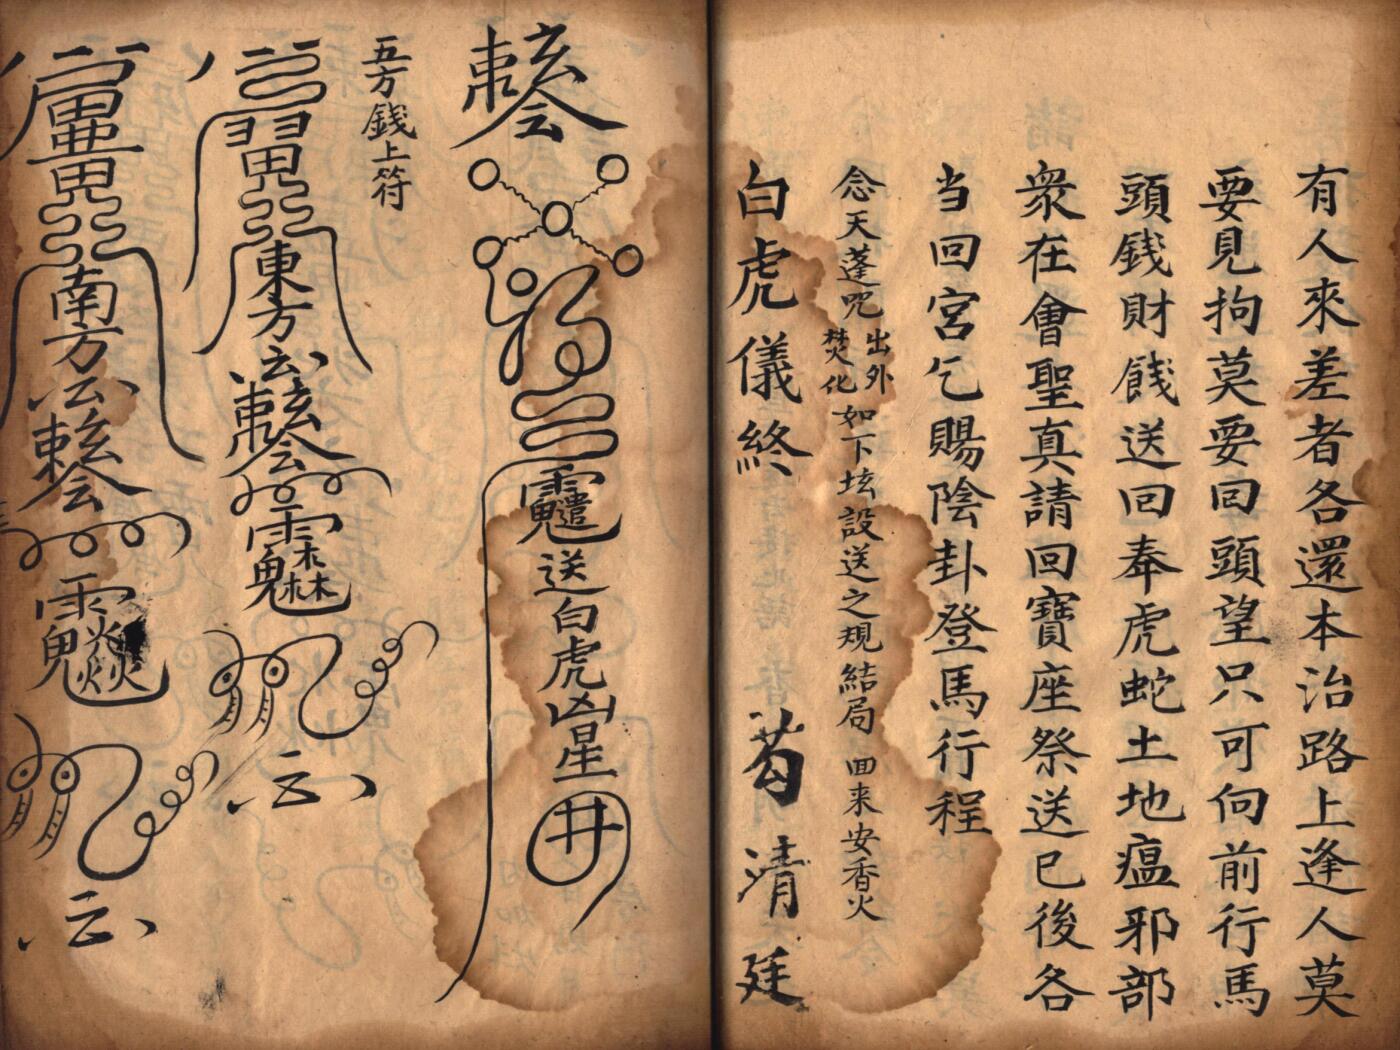 有人來差者各還本治路上逢人莫
要見拘莫要回頭望只可向前行馬
頭錢財餞送回奉虎蛇土地瘟邪部
衆在會聖真請回寶座祭送已後各
当回宮乞賜陰卦登馬行程
念天蓬咒
出外
焚化
如下坛設送之規結局回来安香火
白虎儀終
清廷
送白虎凶星井
五方錢上符
東方
云
云
南方
云